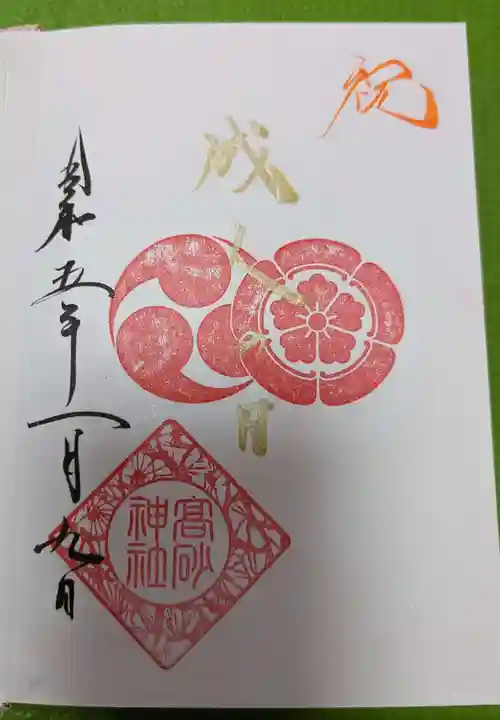 祝
成人の日
高砂
神社
令和五年一月九日